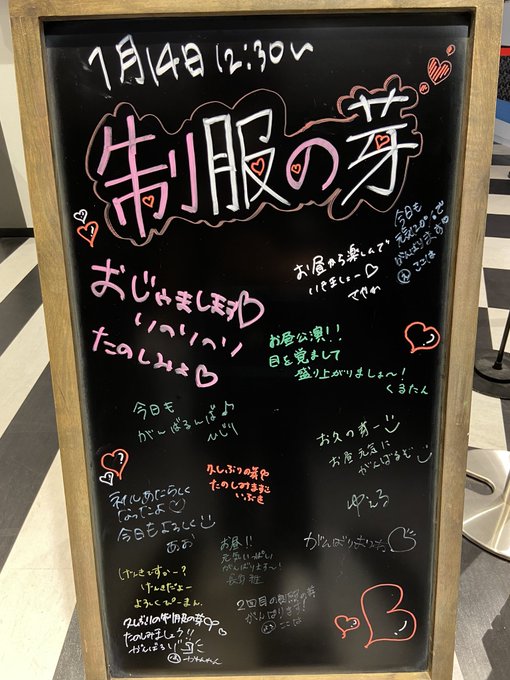 1月14日 12:30〜
制服の芽
今日も
元気にがんばります♡
ここな
お昼から楽しんで
いきましょー♡
おじゃまします♡
りのりのり
たのしみょ♡
お昼公演!!
目を覚まして
盛り上がりましょ〜!
くるたん
今日も
がんばるんば♪
ひじり
お久の芽ー
お昼元気に
がんばるむ
久しぶりの芽
たのしみますっ
いぶき
ネイルあたらしく
なったよ♡
今日もよろしく
あお
お昼!!
元気いっぱい
がんばりまる〜!
がんばりまりな♡
げんきですかー?
げんきだよー
よろしくぴーまん
2回目の制服の芽
がんばります!
ここな
久しぶりの制服の芽
たのしみましょう!!
がんばる!